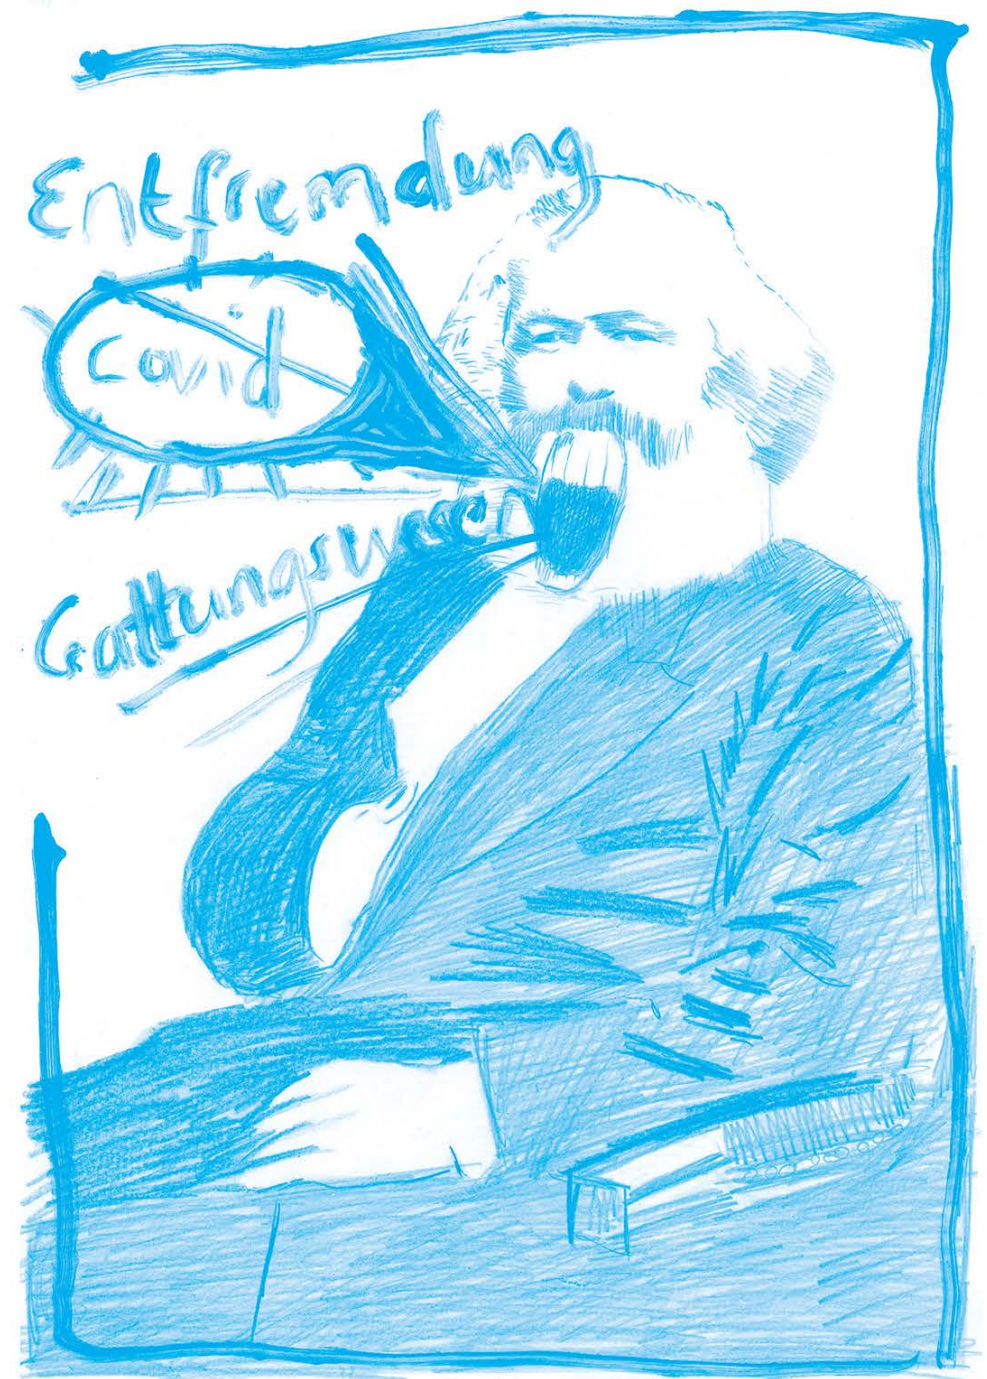 Entfremdung
covid
Gattungswesen